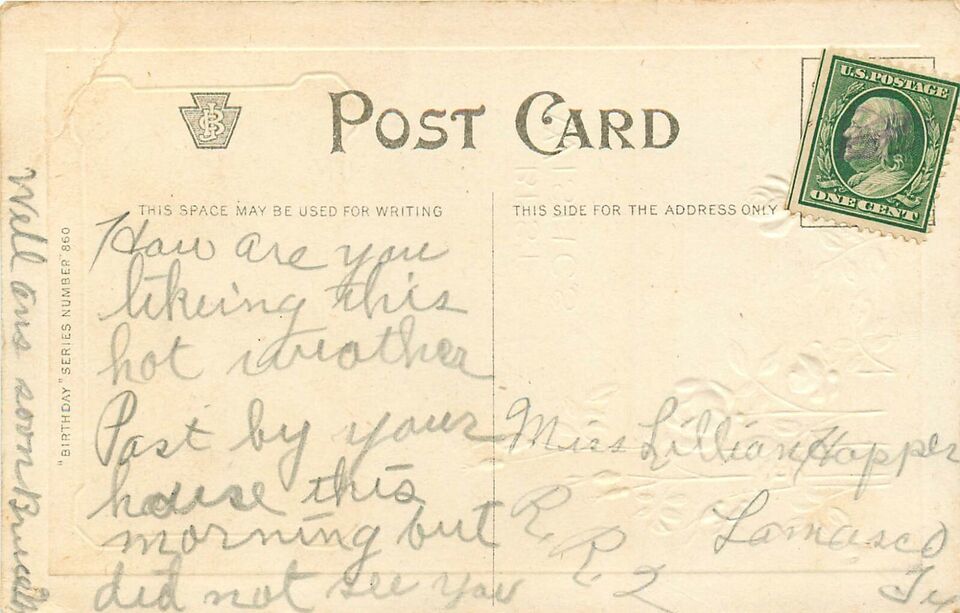 POST CARD
U.S. POSTAGE
ONE CENT
THIS SPACE MAY BE USED FOR WRITING
THIS SIDE FOR THE ADDRESS ONLY
"BIRTHDAY" SERIES NUMBER 860
How are you
likeing this
hot weather
Past by your
house this
morning but
did not see you
Will ans soon
Miss Lillian Hopper
R. R. 2 Lamasco